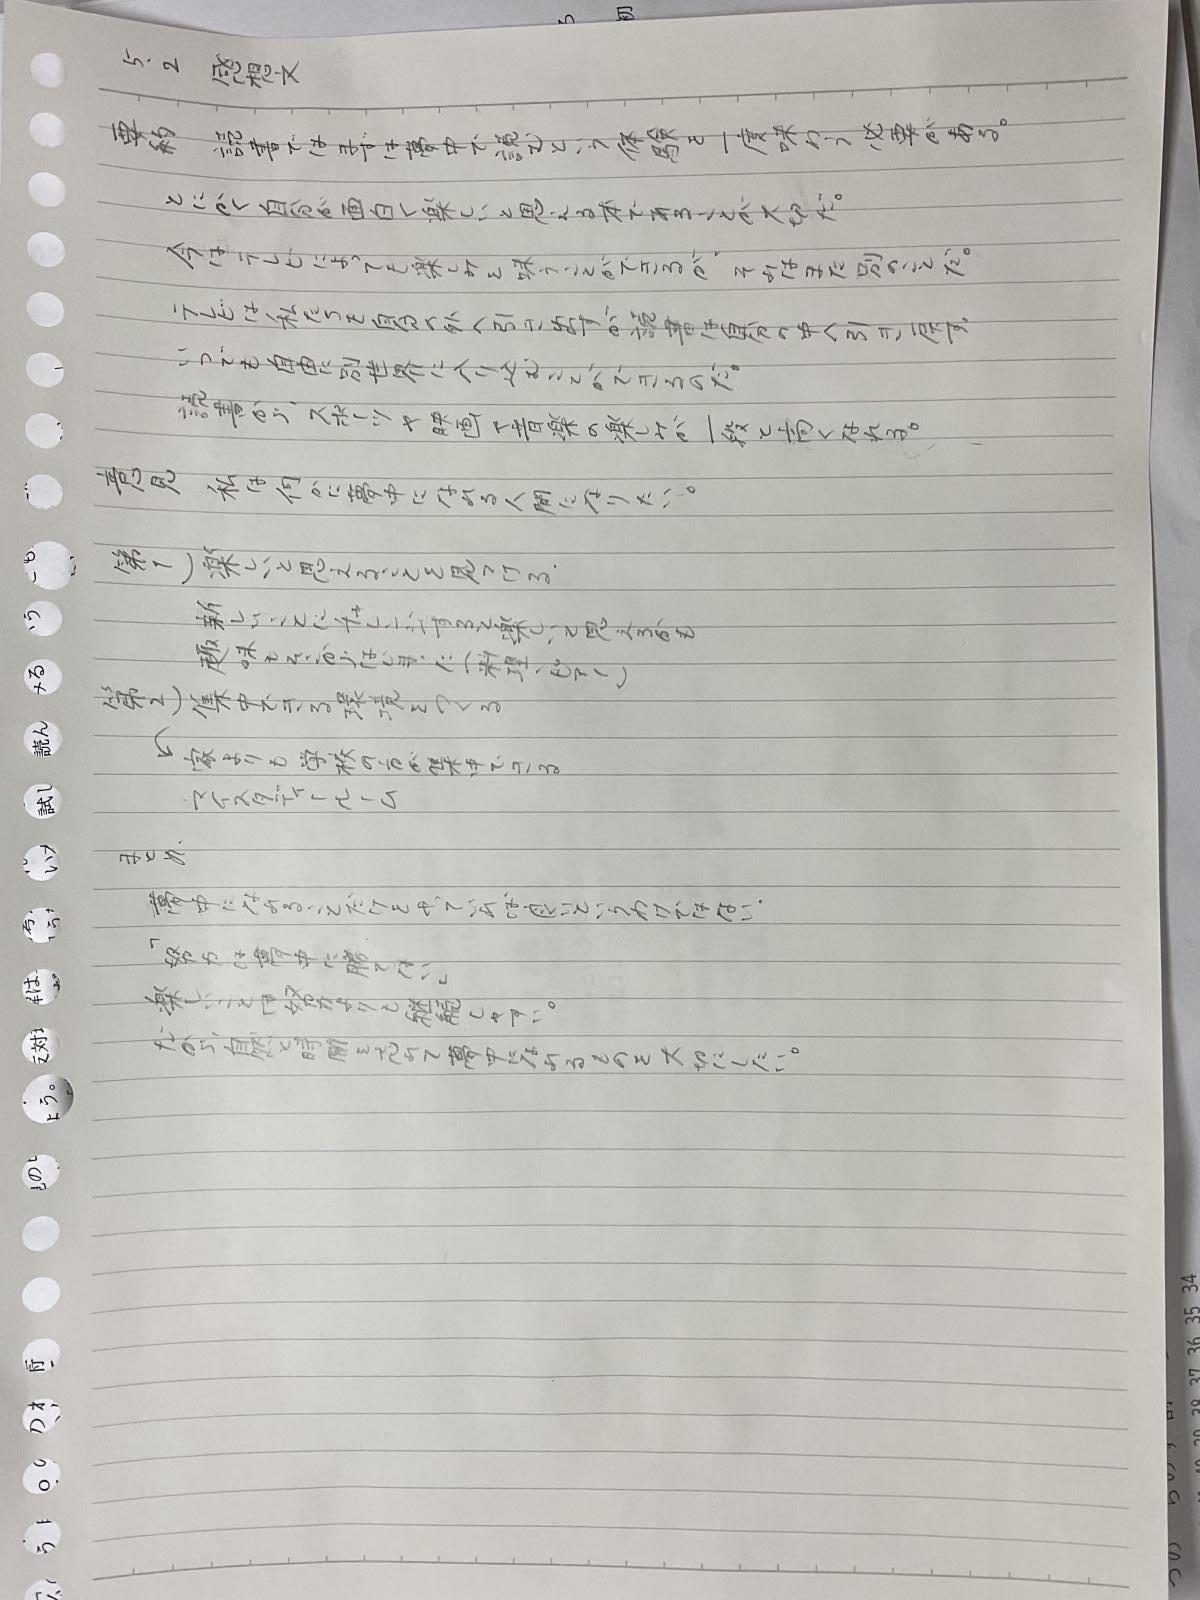 5.2 感想文
要約 読書ではまずは夢中で読むという体験を一度味わう必要がある。
とにかく自分が面白く楽しいと思える本であることが大切だ。
今はテレビによっても楽しみを味うことができるが、それはまた別のことだ。
テレビは私たちを自分の外へ引き出すが読書は自分の中へ引き戻す。
いつでも自由に別世界に入り込むことができるのだ。
読書から、スポーツや映画や音楽の楽しみが一段と高くなれる。
意見 私は何かに夢中になれる人間になりたい。
(第1) 楽しいと思えることを見つける.
新しいことにチャレンジすると楽しいと思えるかも
趣味もそこからはじまった(料理
(第2) 集中できる環境をつくる
↳家よりも学校の方が集中できる
マイスタディールーム
まとめ
夢中になれることだけをやっていれば良いというわけではない.
「努力は夢中に勝てない」
楽しいことは努力よりも継続しやすい。
だから自然と時間を忘れて夢中になれるものを大切にしたい。
読ん
試し
34
35
36
37
38